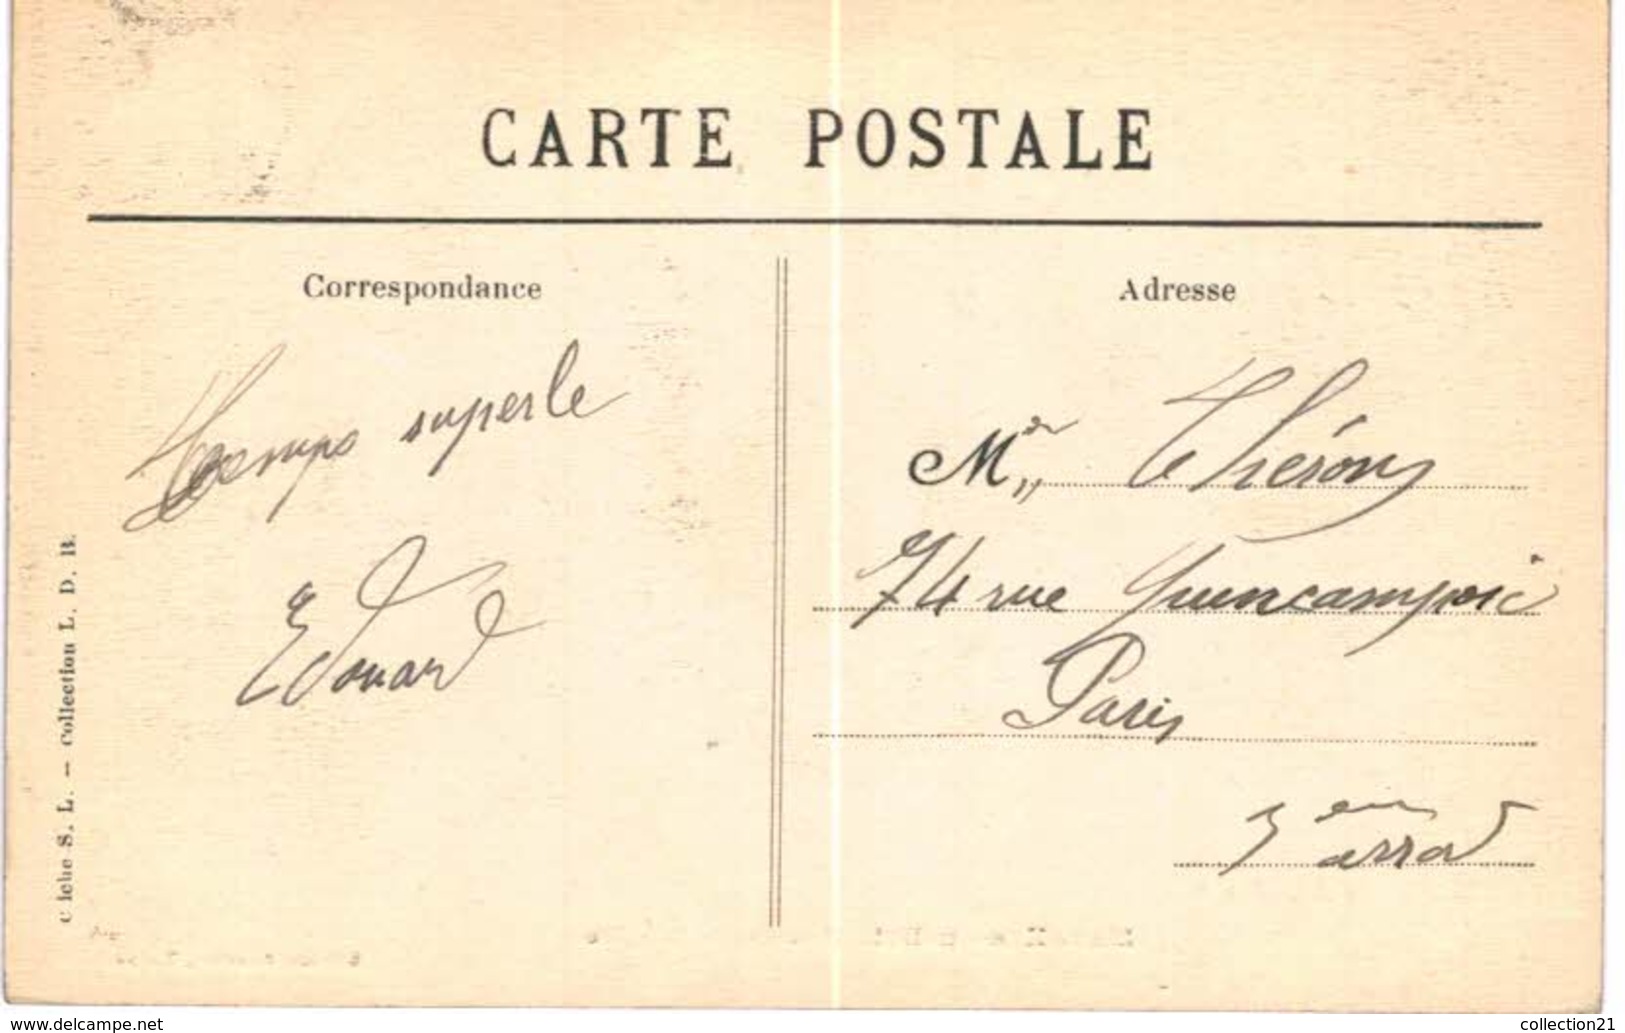 CARTE POSTALE
Correspondance
Temps superbe
Edouard
Adresse
Mr Théron
74 rue Quincampoix
Paris
3eme arrd
Cliché S. L. – Collection L. D. B.
www.delcampe.net
collection21